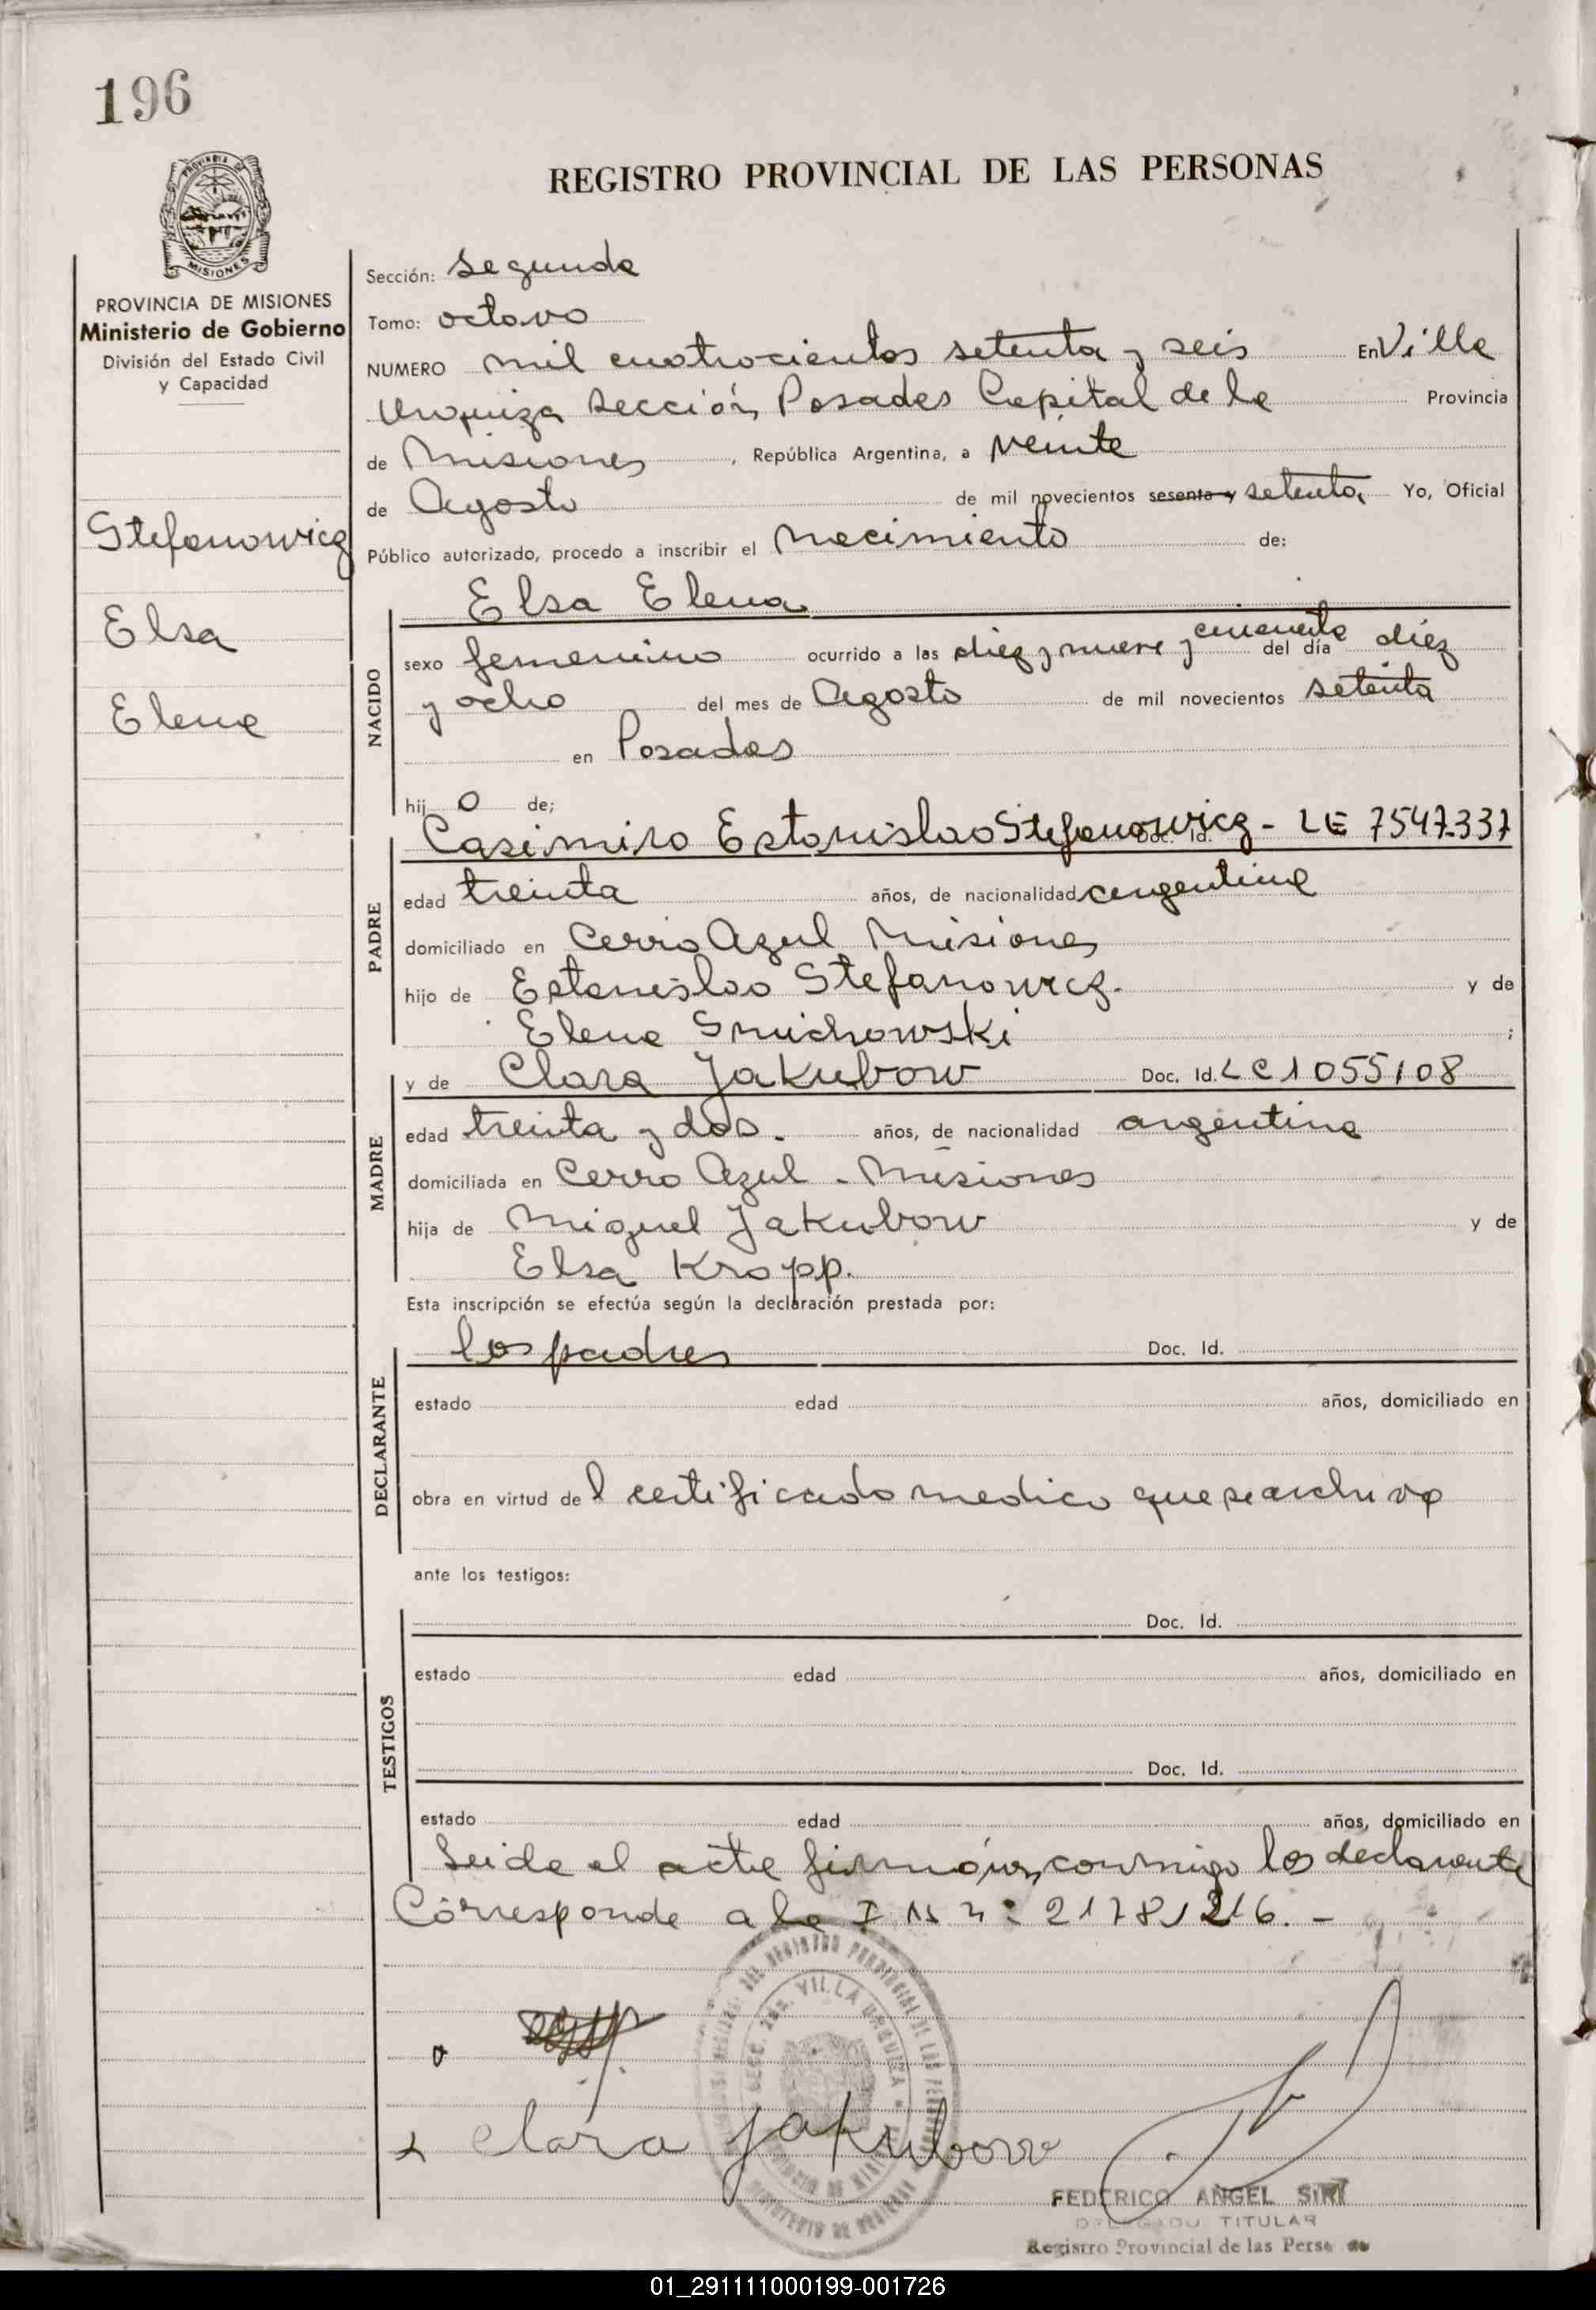 196
PROVINCIA DE
MISIONES
REGISTRO PROVINCIAL DE LAS PERSONAS
PROVINCIA DE MISIONES
Ministerio de Gobierno
División del Estado Civil
y Capacidad
Stefanowicz
Elsa
Elena
Sección: segunda
Tomo: octavo
NUMERO mil cuatrocientos setenta y seis En Villa
Urquiza sección Posadas Capital de la Provincia
de Misiones , República Argentina, a veinte
de Agosto de mil novecientos sesenta y setenta Yo, Oficial
Público autorizado, procedo a inscribir el nacimiento de:
Elsa Elena
NACIDO
sexo femenino ocurrido a las diez y nueve y cincuenta del día diez
y ocho del mes de Agosto de mil novecientos setenta
en Posadas
hij o de;
PADRE
Casimiro Estanislao Stefanowicz - Doc. Id. LE 7547.337
edad treinta años, de nacionalidad argentina
domiciliado en Cerro Azul Misiones
hijo de Estanislao Stefanowicz. y de
Elena Smichowski ;
MADRE
y de Clara Jakubow Doc. Id. LC 1055108
edad treinta y dos. años, de nacionalidad argentina
domiciliada en Cerro Azul - Misiones
hija de Miguel Jakubow y de
Elsa Kropp.
Esta inscripción se efectúa según la declaración prestada por:
DECLARANTE
los padres Doc. Id.
estado edad años, domiciliado en
obra en virtud de l certificado medico que se archiva
ante los testigos:
TESTIGOS
Doc. Id.
estado edad años, domiciliado en
Doc. Id.
estado edad años, domiciliado en
Leida el acta firman conmigo los declarante
Corresponde a la I N n: 21781216. -
VILLA URQUIZA
Clara Jakubow
FEDERICO ANGEL SIRI
DELEGADO TITULAR
Registro Provincial de las Perso
01_291111000199-001726